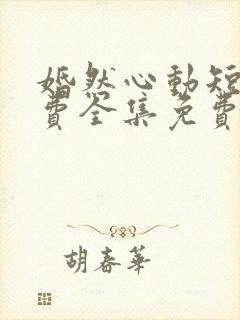 婚然心動短
費全集免費
胡春華